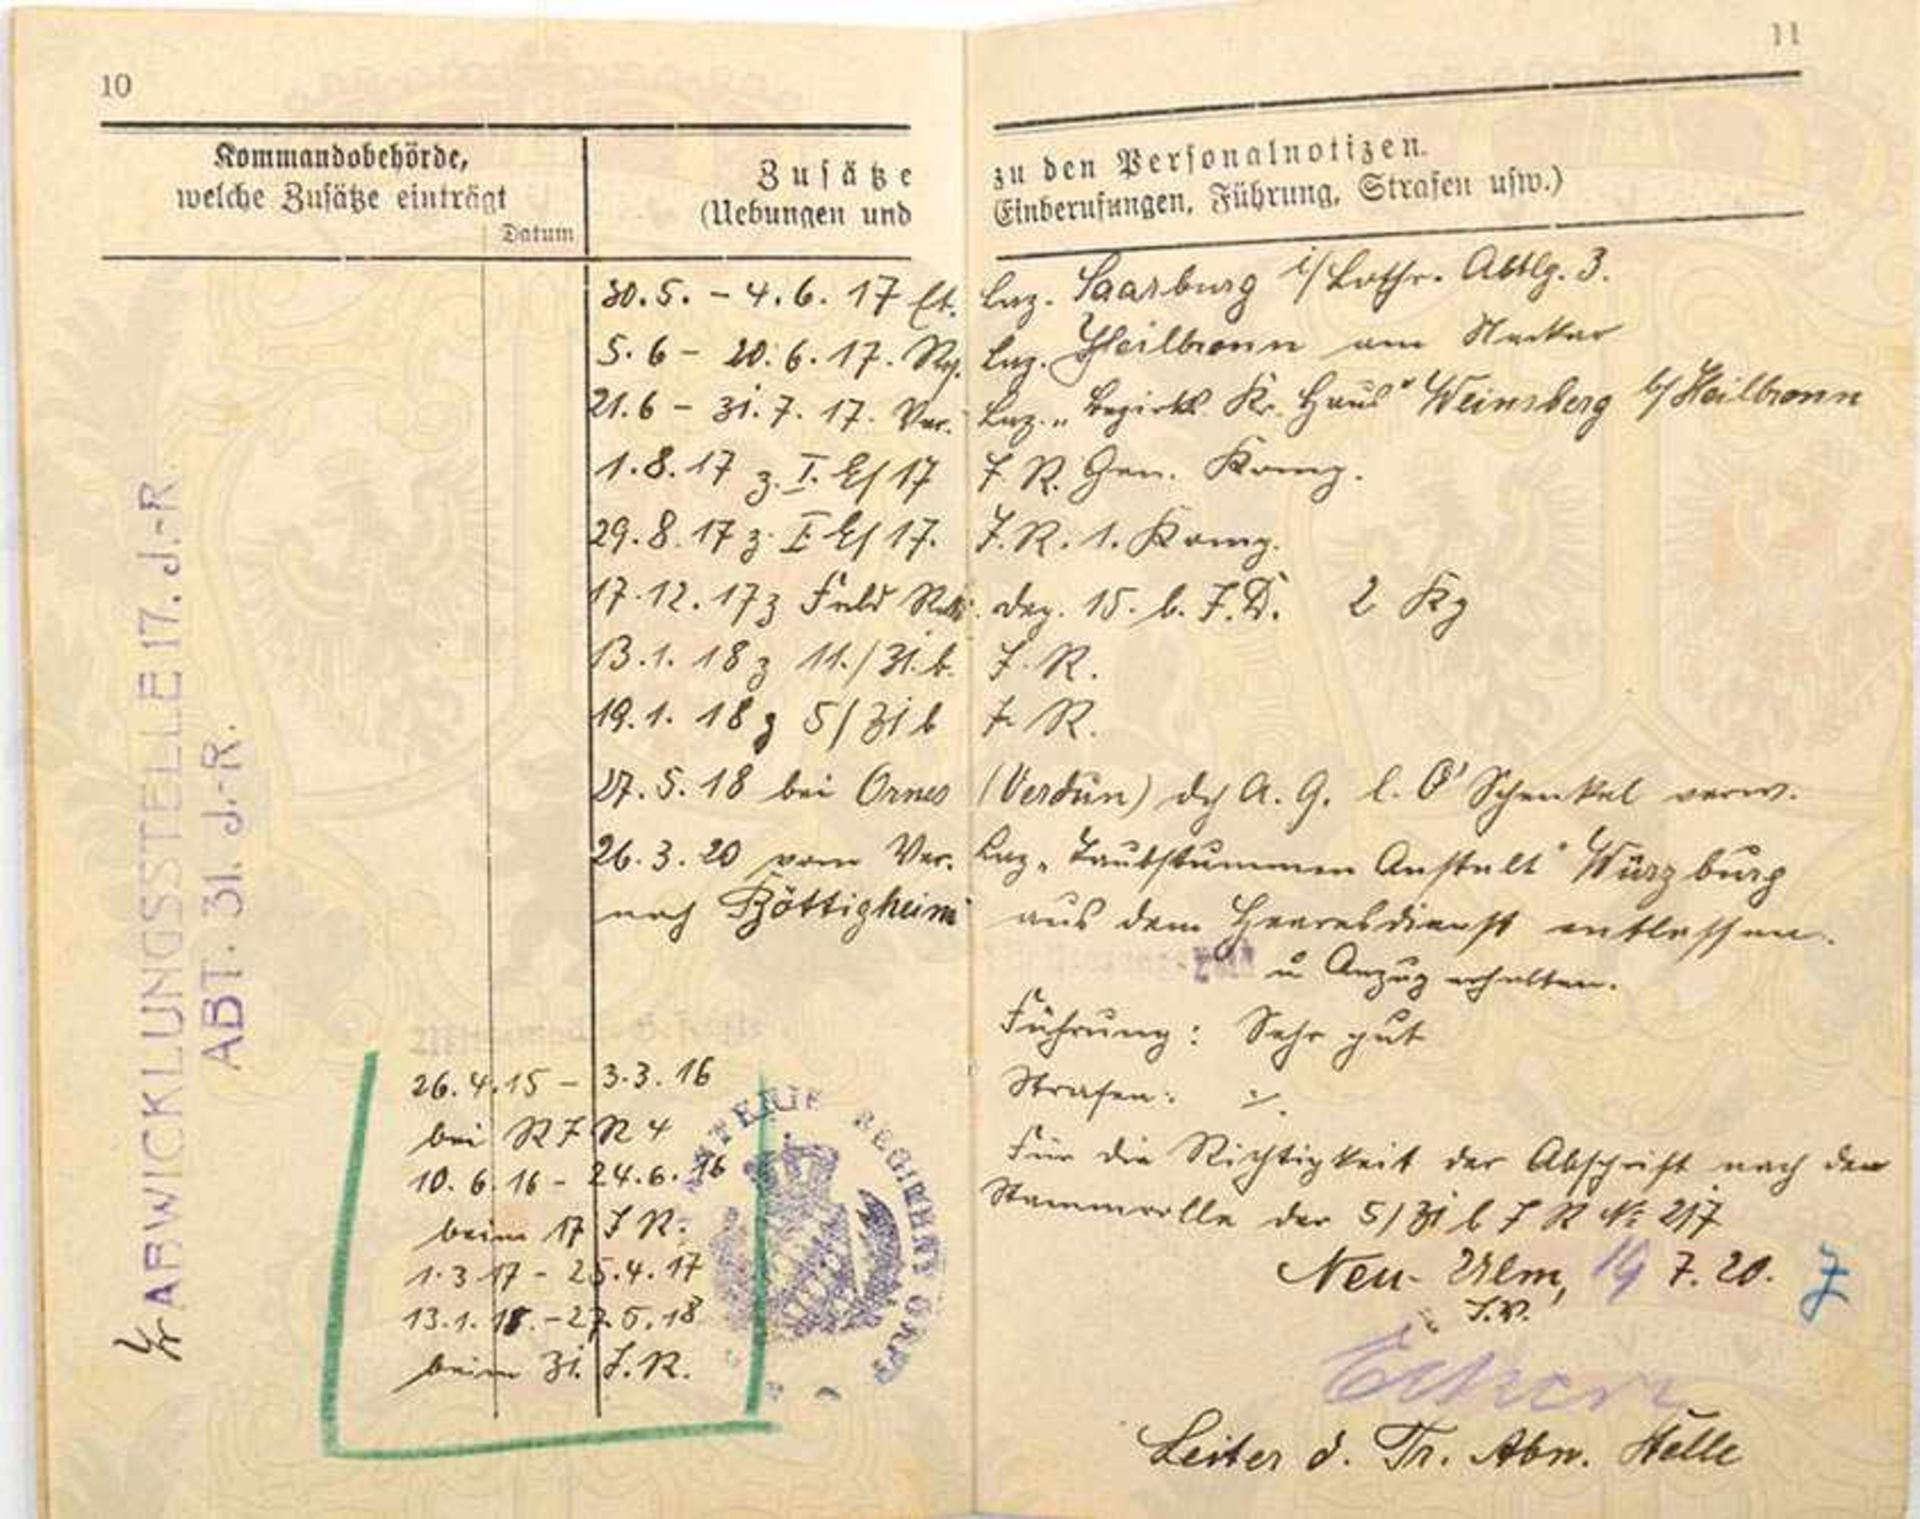 10
11
Kommandobehörde,
welche Zusätze einträgt
Datum
Zusätze zu den Personalnotizen.
(Uebungen und Einberufungen, Führung, Strafen usw.)
30.5. – 4.6. 17 Et. Laz. Saarburg i/Lothr. Abtlg. 3.
5.6 – 20.6.17. Laz. Heilbronn am Neckar
21.6 – 31.7.17. Ver. Laz. „Bezirks Kr. Haus" Weinsberg b/Heilbronn
1.8.17 z. I. E/17 J. R. Gen. Komp.
29.8.17 z. I E/17. J. R. 1. Komp.
17.12.17 z Feld Rekr. dep. 15. b. J. D. 2 Kp
13.1.18 z 11./31. b. J. R.
19.1.18 z 5/31 b J. R.
27.5.18 bei Ornes (Verdun) dch A. G. l. O' Schenkel verw.
26.3.20 vom Ver. Laz „Taubstummen Anstalt" Würzburg
nach Böttigheim aus dem Heeresdienst entlassen.
u Anzug erhalten.
Führung: Sehr gut
Strafen: ./.
Für die Richtigkeit der Abschrift nach der
Stammrolle der 5/31 b J R № 217
Neu-Ulm, 19 7.20.
J.V.
Leiter d. Tr. Abw. Stelle
26.4.15 – 3.3.16
bei R J R 4
10.6.16 – 24.6.16
beim 17 J R.
1.3.17 – 25.4.17
13.1.18. – 27.5.18
beim 31. J. R.
ABWICKLUNGSSTELLE 17. J.-R.
ABT. 31. J.-R.